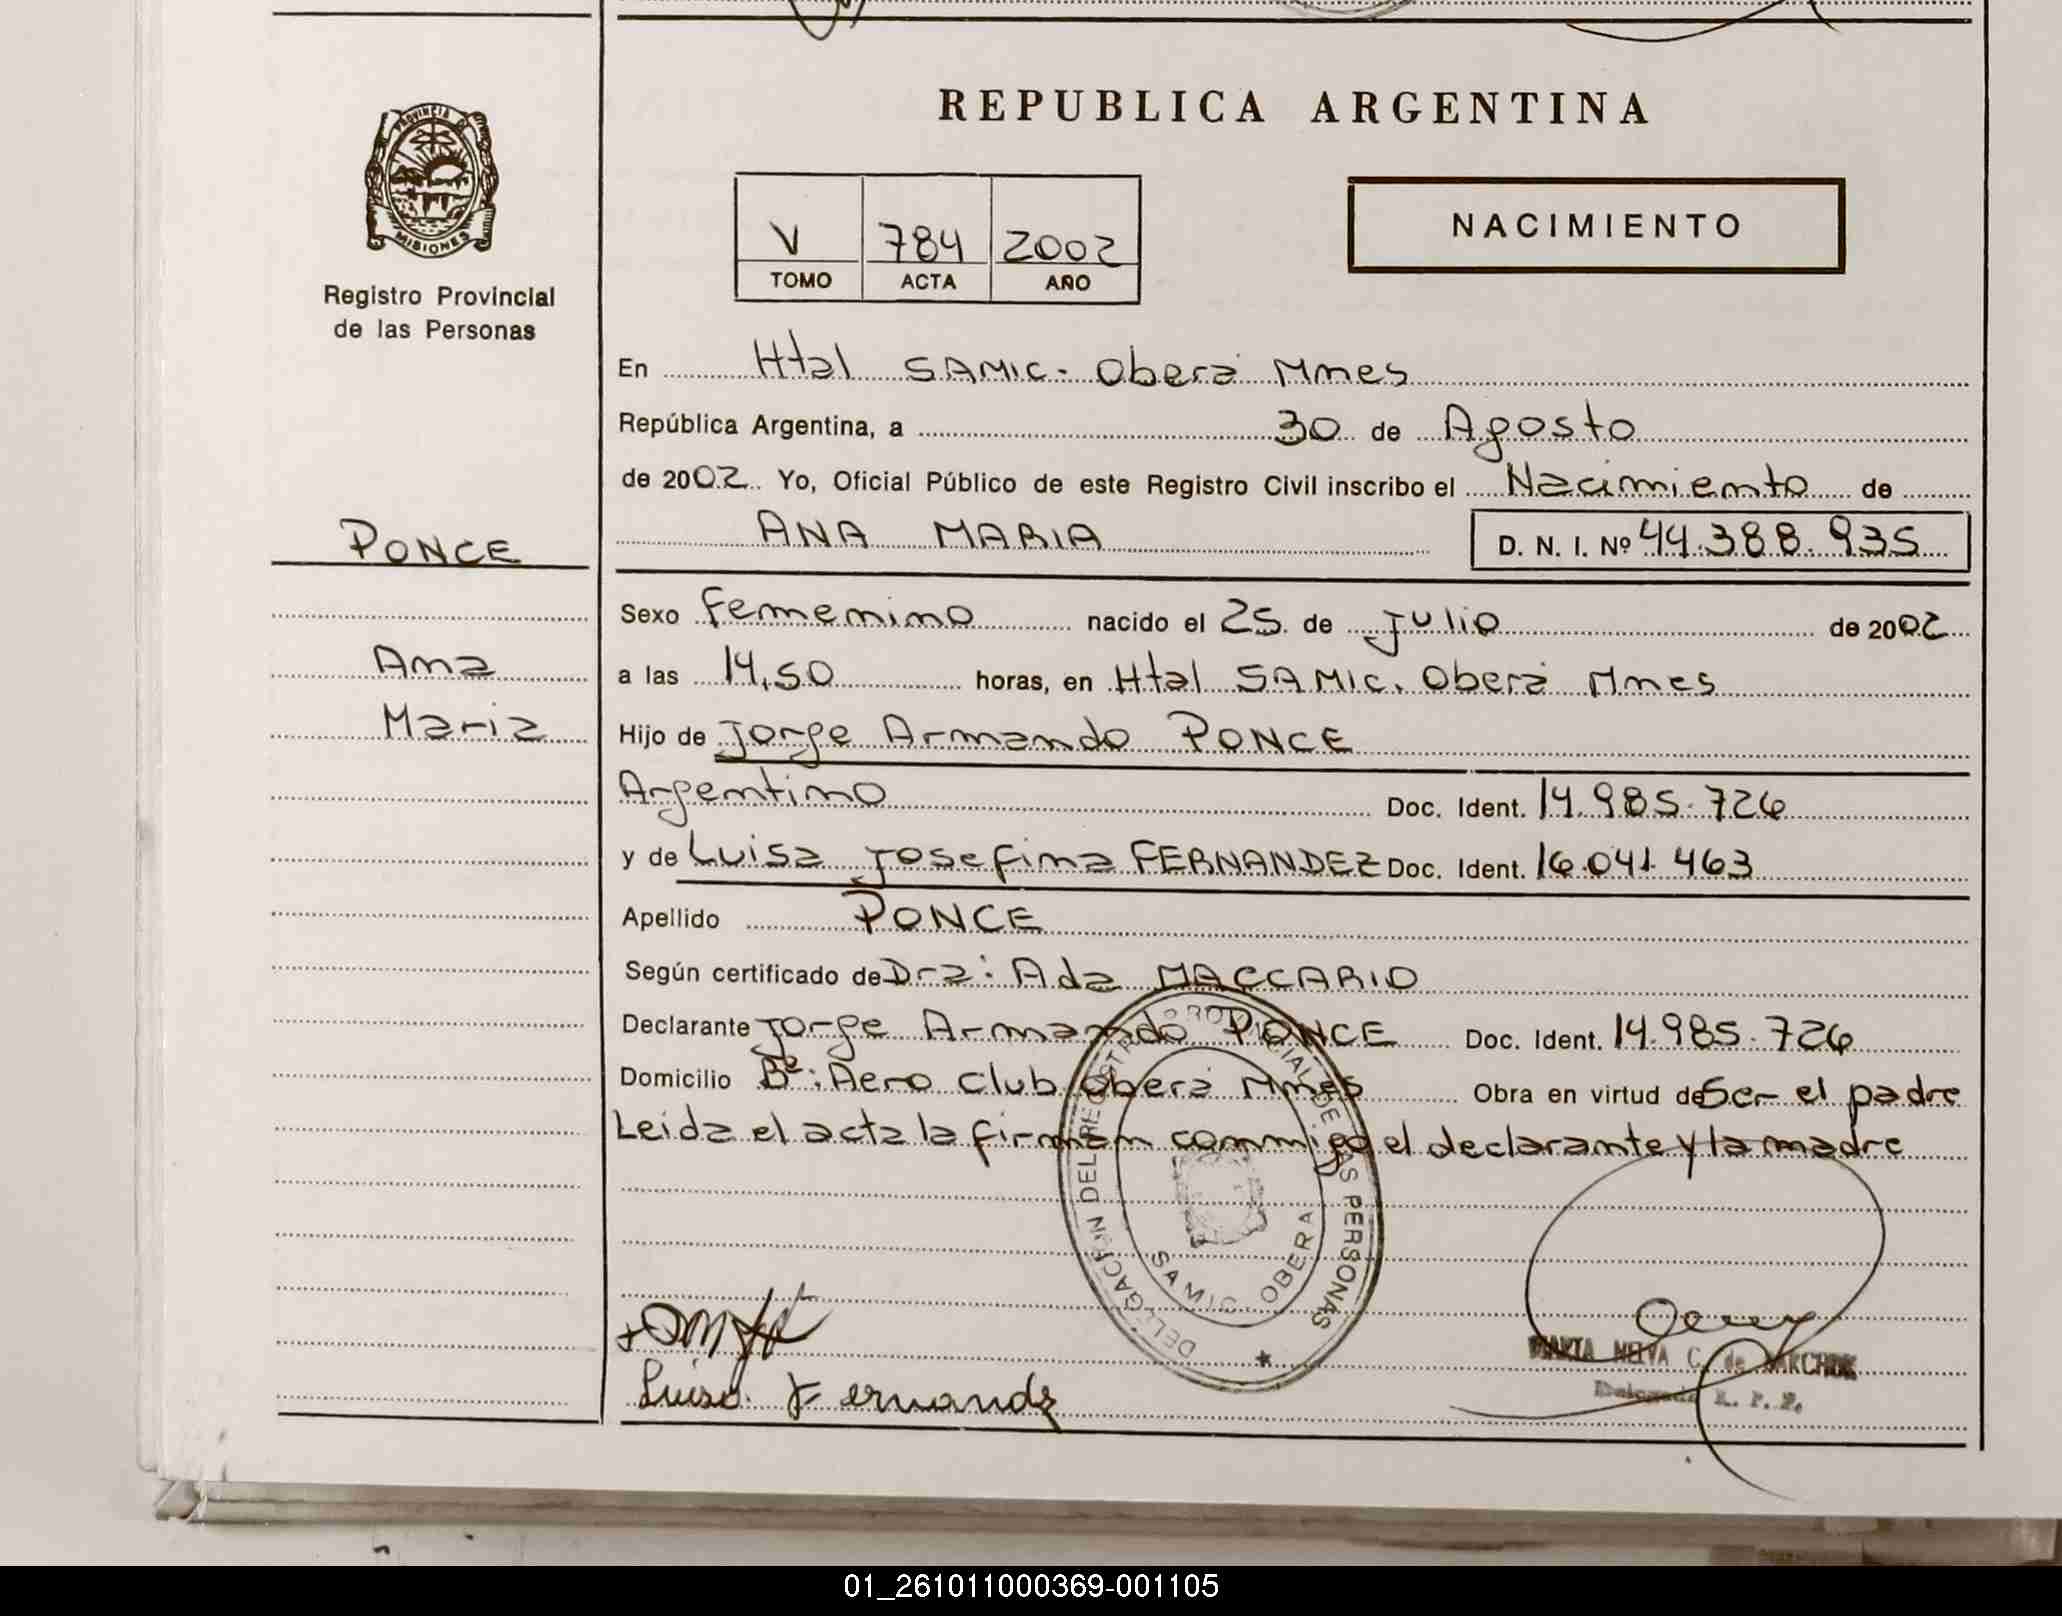 REPUBLICA ARGENTINA
PROVINCIA DE
MISIONES
Registro Provincial
de las Personas
V 784 2002
TOMO ACTA AÑO
NACIMIENTO
En Htal SAMIC. Oberá Mnes
República Argentina, a 30 de Agosto
de 2002. Yo, Oficial Público de este Registro Civil inscribo el Nacimiento de
PONCE
ANA MARIA D. N. I. Nº 44.388.935
Sexo Femenino nacido el 25 de Julio de 2002
Ana
a las 14,50 horas, en Htal SAMIC. Oberá Mnes
Maria
Hijo de Jorge Armando PONCE
Argentino Doc. Ident. 14.985.726
y de Luisa Josefina FERNANDEZ Doc. Ident. 16.041.463
Apellido PONCE
Según certificado de Dra: Ada MACCARIO
Declarante Jorge Armando PONCE Doc. Ident. 14.985.726
Domicilio Bº: Aero Club Oberá Mnes Obra en virtud de Ser el padre
Leida el acta la firman conmigo el declarante y la madre
DELEGACION DEL REGISTRO PROVINCIAL DE LAS PERSONAS
SAMIC - OBERA
MARTA NELVA C. de
Delegada R. P. P.
Luisa J Fernandez
01_261011000369-001105